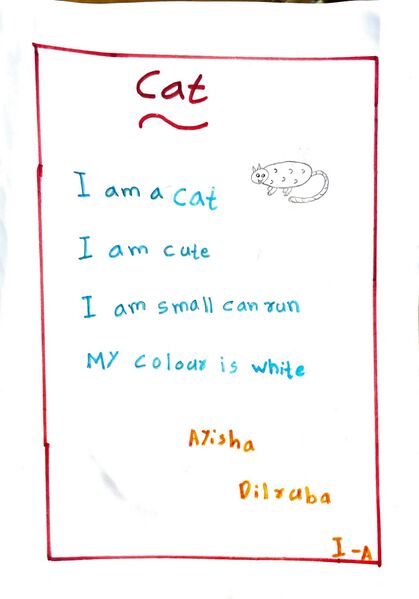 Cat
I am a cat
I am cute
I am small can run
MY colour is white
Ayisha
Dilruba
I-A